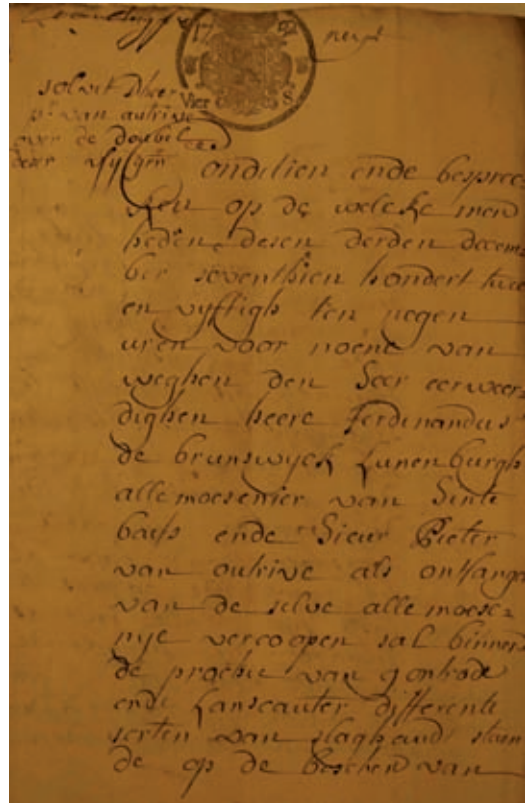 17 52
Vier S.
solvit Dheer
pr. van autrive
over de doubel
deser
Conditien ende bespree=
ken op de welcke men
heden desen derden decem=
ber seventhien hondert twee
en vyftigh ten negen
uren voor noene van
weghen den Seer eerweer=
dighen heere Ferdinandus
de brunswyck Lunenburgh
allemoesenier van Sinte
baefs ende Sieur Pieter
van outrive als ontfanger
van de selve allemoese=
nije vercoopen sal binnen
de prochie van gontrode
ende Lanscauter differente
sorten van slaghaudt staen
de op de bosschen van